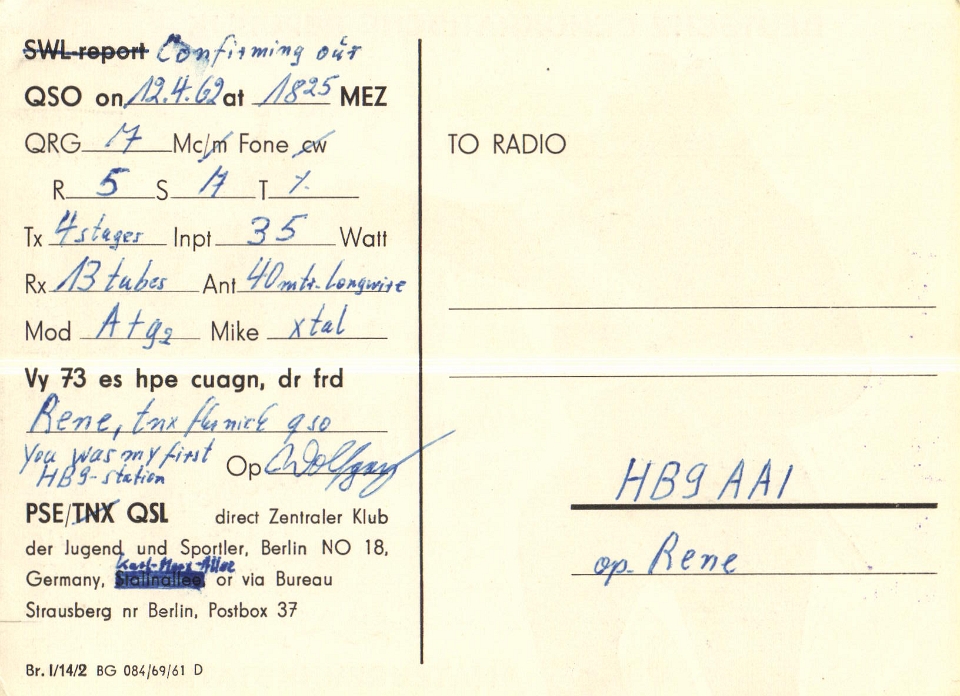 SWL-report Confirming our
QSO on 12.4.62 at 1825 MEZ
QRG 7 Mc/m Fone cw
R 5 S 7 T
Tx 4 stages Inpt 35 Watt
Rx 13 tubes Ant 40 mtr. Longwire
Mod A+g2 Mike xtal
Vy 73 es hpe cuagn, dr frd
Rene, tnx qso
You was my first
HB9-station Op Wolfgang
PSE/TNX QSL direct Zentraler Klub
der Jugend und Sportler, Berlin NO 18,
Karl-Marx-Allee
Germany, Stalinallee, or via Bureau
Strausberg nr Berlin, Postbox 37
Br. I/14/2 BG 084/69/61 D
TO RADIO
HB9 AAI
op. Rene